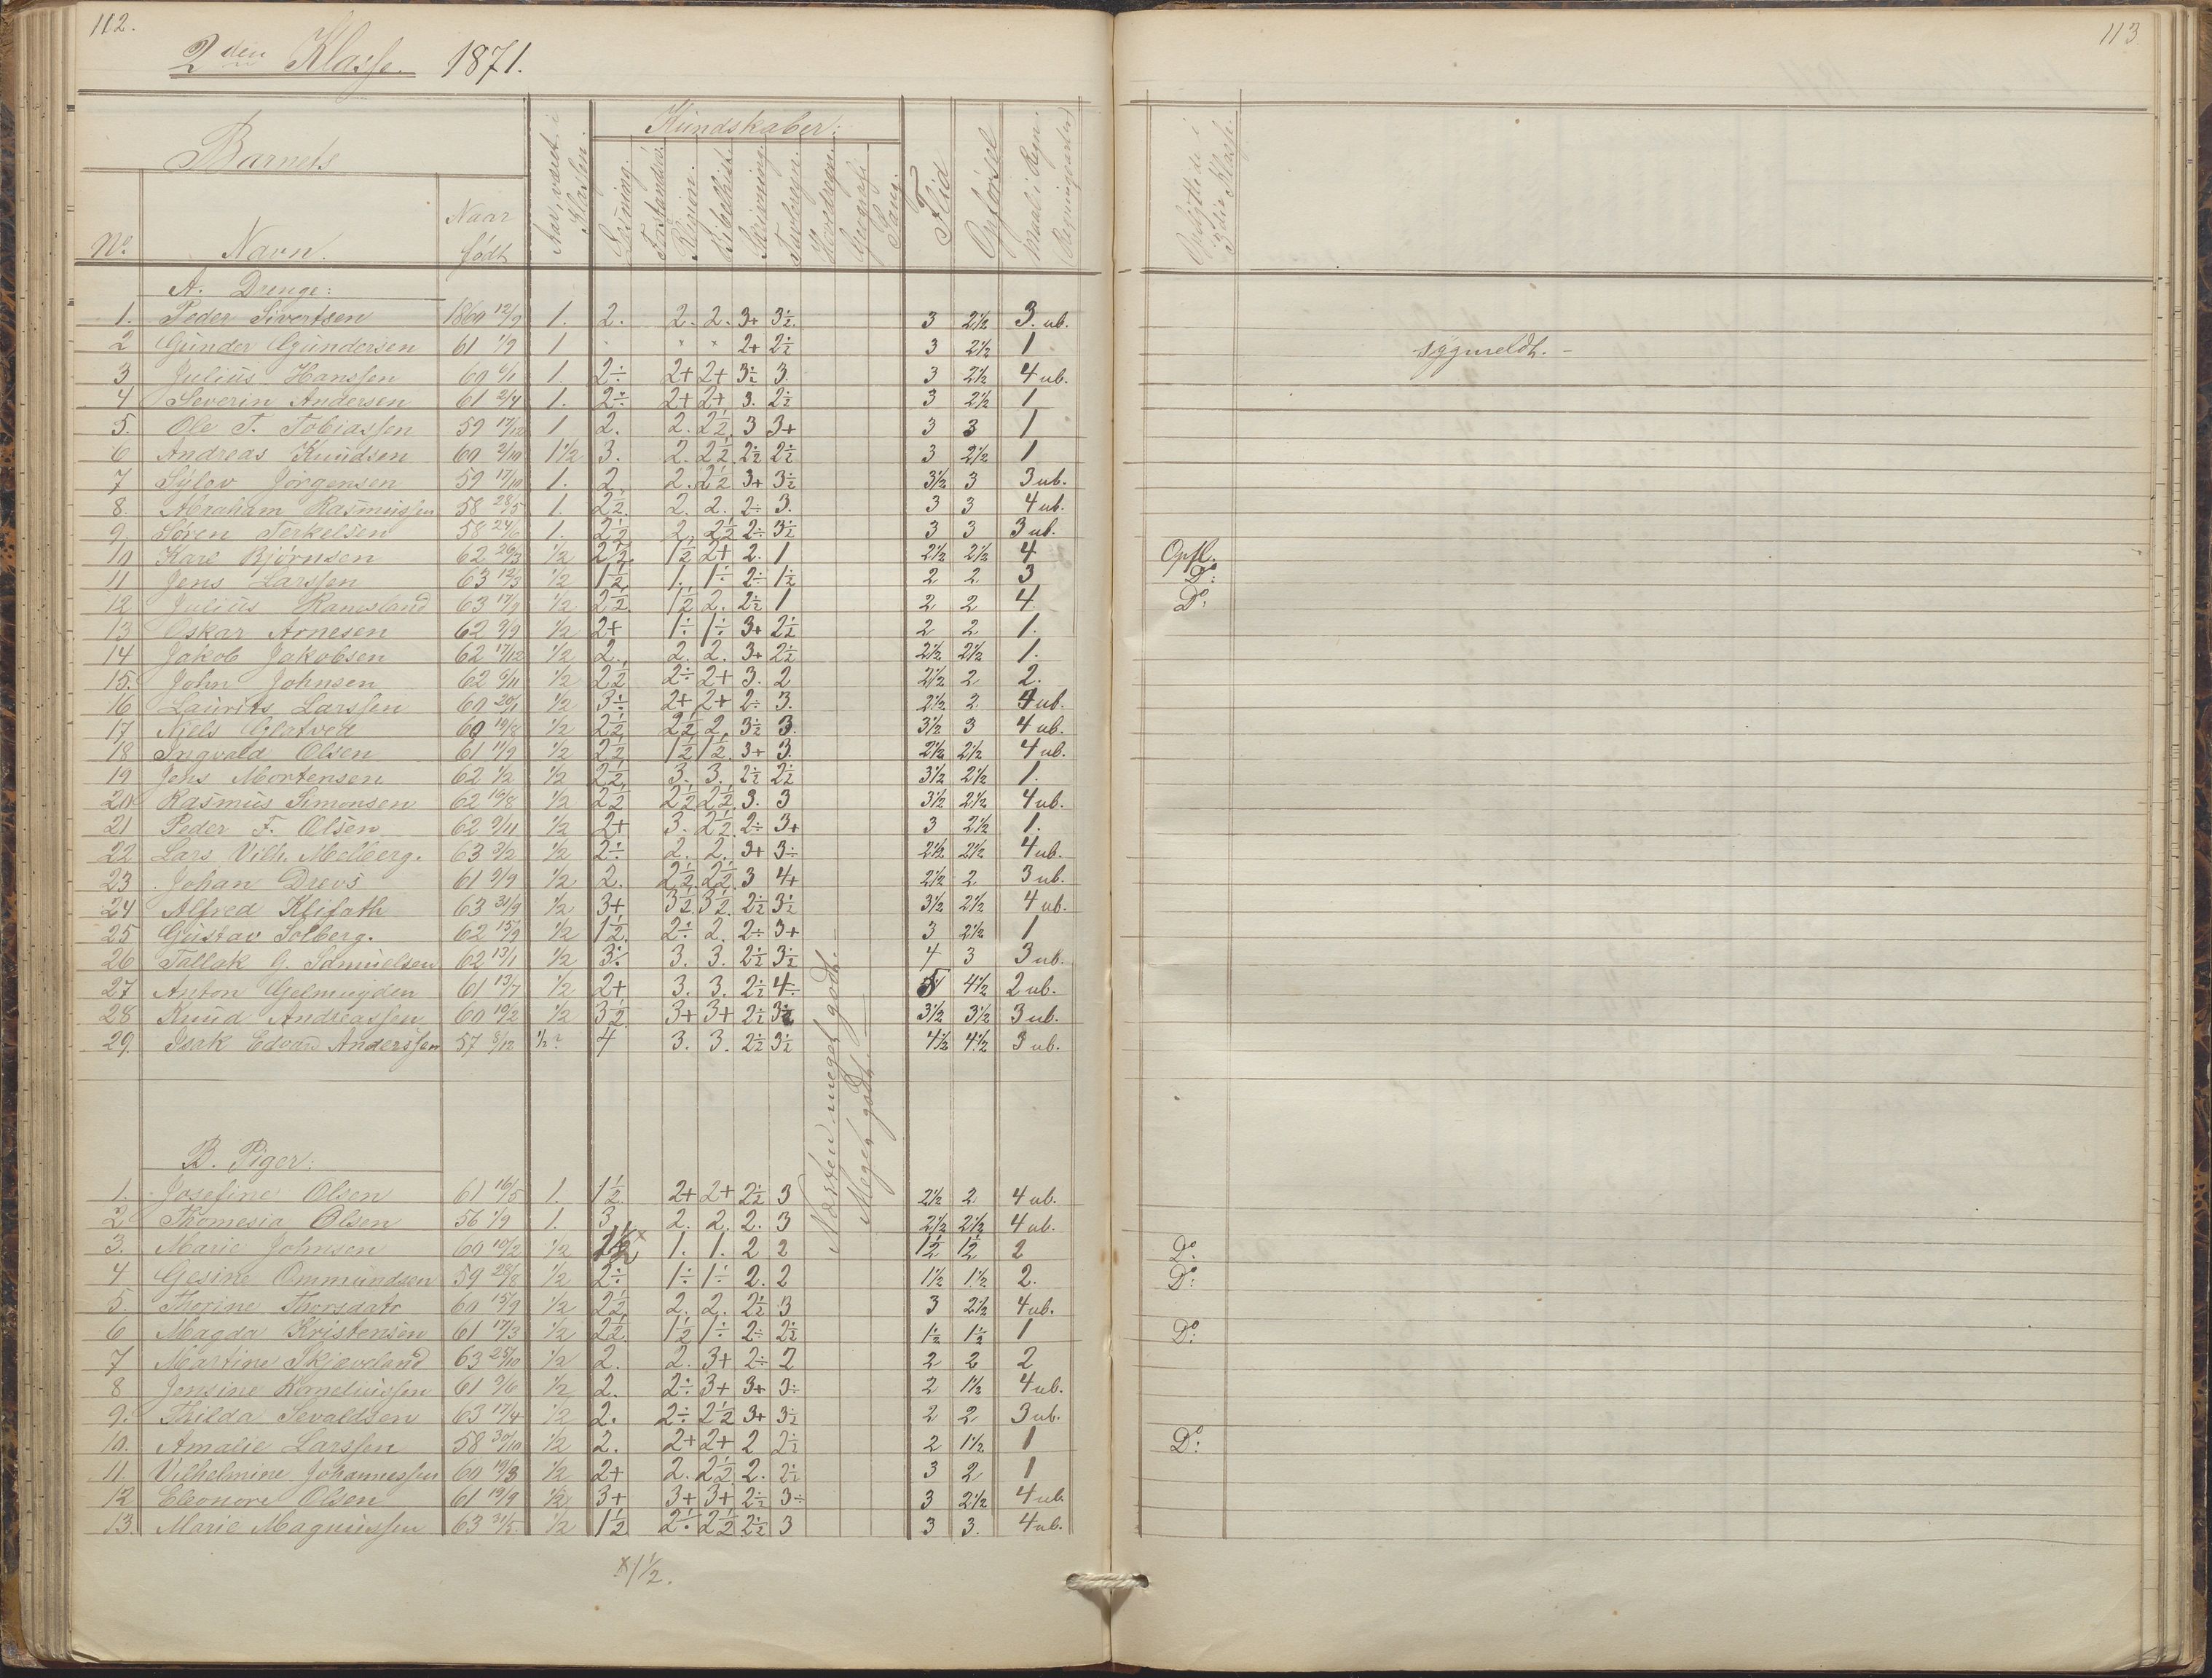 112.
2den Klasse. 1871.
Barnets
No. Navn. Naar født
Aar, været i Klassen.
Kundskaber:
Læsning. Forstandsøv. Religion. Bibelhist. Skrivning. Tavleregn. Hovedregn. Geografi Sang.
Flid
Opførsel
Maal i Regn.
A. Drenge:
1. Peder Sivertsen 1860 12/9 1. 2. 2. 2. 3+ 3½. 3 2½ 3. ub.
2 Gunder Gundersen 61 1/9 1 " " " 2+ 2½ 3 2½ 1
3 Julius Hanssen 60 1. 2÷ 2+ 2+ 3½ 3. 3 2½ 4 ub.
4 Severin Andersen 61 2/4 1. 2÷ 2+ 2+ 3. 2½ 3 2½ 1
5. Ole T. Tobiassen 59 17/12 1 2. 2. 2½ 3 3+ 3 3 1
6 Andreas Knudsen 60 2/10 1½ 3. 2. 2½ 2½ 2½ 3 2½ 1
7 Sylov Jørgensen 59 17/10 1. 2. 2. 2½ 3+ 3½ 3½ 3 3 ub.
8. Abraham Rasmussen 58 28/5 1. 2½ 2. 2. 2÷ 3. 3 3 4 ub.
9. Søren Terkelsen 58 24/6 1. 2½ 2. 2½ 2÷ 3½ 3 3 3 ub.
10 Kare Bjørnsen 62 26/3 ½ 2½. 1½ 2+ 2. 1 2½ 2½ 4
11 Jens Larssen 63 12/3 ½ 1½ 1. 1÷ 2÷ 1½ 2 2 3
12 Julius Ranesland 63 17/9 ½ 2½ 1½ 2. 2½ 1 2 2 4.
13 Oskar Arnesen 62 9/9 ½ 2+ 1÷ 1÷ 3+ 2½ 2 2 1.
14 Jakob Jakobsen 62 17/12 ½ 2. 2. 2. 3+ 2½ 2½ 2½ 1.
15. John Johnsen 62 6/11 ½ 2½ 2÷ 2+ 3. 2 2½ 2 2.
16 Laurits Larssen 60 20/1 ½ 3÷ 2+ 2+ 2÷ 3. 2½ 2 4 ub.
17 Niels Glatved 60 19/8 ½ 2½ 2½ 2. 3½ 3. 3½ 3 4 ub.
18 Ingvald Olsen 61 11/9 ½ 2½ 1½ 1½ 3+ 3. 2½ 2½ 4 ub.
19 Jens Mortensen 62 1/2 ½ 2½ 3. 3. 2½ 2½ 3½ 2½ 1.
20 Rasmus Simonsen 62 16/8 ½ 2½ 2½ 2½ 3. 3 3½ 2½ 4 ub.
21 Peder F. Olsen 62 9/11 ½ 2+ 3. 2½ 2÷ 3+ 3 2½ 1.
22 Lars Vilh. Melberg. 63 3/2 ½ 2÷ 2. 2. 3+ 3÷ 2½ 2½ 4 ub.
23 Johan Drevs 61 9/9 ½ 2. 2½ 2½ 3 4+ 2½ 2 3 ub.
24 Alfred Klifath 63 31/9 ½ 3+ 3½ 3½ 2½ 3½ 3½ 2½ 4 ub.
25 Gustav Solberg. 62 15/9 ½ 1½ 2÷ 2. 2÷ 3+ 3 2½ 1
26 Tallak G. Samuelsen 62 13/1 ½ 3÷ 3. 3. 2½ 3½ 4 3 3 ub.
27 Anton Gelmuyden 61 13/7 ½ 2+ 3. 3. 2½ 4÷ 5 4½ 2 ub.
28 Knud Andreassen 60 10/2 ½ 3½ 3+ 3+ 2½ 3½ 3½ 3½ 3 ub.
29. Isak Edvard Anderssen 57 8/12 ½? 4 3. 3. 2½ 3½ 4½ 4½ 3 ub.
Næsten meget godt.
Meget godt.
B. Piger:
1. Josefine Olsen 61 16/5 1. 1½ 2+ 2+ 2½ 3 2½ 2 4 ub.
2. Thomesia Olsen 56 1/9 1. 3. 2. 2. 2. 3 2½ 2½ 4 ub.
3. Marie Johnsen 60 10/2 ½ x 1. 1. 2 2 1½ 1½ 2
4 Gesine Ommundsen 59 28/8 ½ 2÷ 1÷ 1÷ 2. 2 1½ 1½ 2.
5. Thorine Thorsdatr 60 15/9 ½ 2½ 2. 2. 2½ 3 3 2½ 4 ub.
6 Magda Kristensen 61 17/3 ½ 2½ 1½ 1÷ 2÷ 2½ 1½ 1½ 1
7 Martine Skjæveland 63 25/10 ½ 2. 2. 3+ 2÷ 2 2 2 2
8 Jensine Korneliussen 61 9/6 ½ 2. 2÷ 3+ 3+ 3÷ 2 1½ 4 ub.
9. Thilda Sevaldsen 63 17/4 ½ 2. 2÷ 2½ 3+ 3½ 2 2 3 ub.
10. Amalie Larssen 58 30/10 ½ 2. 2+ 2+ 2 2½ 2 1½ 1
11. Vilhelmine Johannessen 60 19/3 ½ 2+ 2. 2½ 2. 2½ 3 2 1
12 Eleonore Olsen 61 19/9 ½ 3+ 3+ 3+ 2½ 3÷ 3 2½ 4 ub.
13. Marie Magnussen 63 ½ 1½ 2÷ 2½ 2½ 3 3 3. 4 ub.
x 1½.
113
Opflyttede i 3die Klasse.
sygmeldt. -
Opfl.
Do:
Do:
Do:
Do:
Do:
Do: